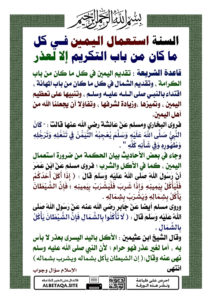 بسم الله الرحمن الرحيم
السنة استعمال اليمين في كل
ما كان من باب التكريم إلا لعذر
قاعدة الشريعة : تقديم اليمين في كل ما كان من باب
الكرامة ، وتقديم الشمال في كل ما كان من باب المهانة ،
اقتداء بالنبي صلى الله عليه وسلم ، وتنبيها على تعظيم
اليمين ، وتميزها ، وزيادة لشرفها ، وتفاؤلا أن يجعلنا الله من
أهل اليمين
فروى البخاري ومسلم عن عائشة رضي الله عنها قالت : " كان
النبي صلى الله عليه وسلم يعجبه التيمن في تنعله وترجله
وطهوره وفي شأنه كله "
وجاء في بعض الأحاديث بيان الحكمة من ضرورة استعمال
اليمين ، كما في الأكل والشرب ، فروى مسلم عن ابن عمر
أن رسول الله صلى الله عليه وسلم قال : ( إذا أكل أحدكم
فليأكل بيمينه وإذا شرب فليشرب بيمينه ، فإن الشيطان
يأكل بشماله ويشرب بشماله )
وروى مسلم أيضا عن جابر رضي الله عنه عن رسول الله صلى
الله عليه وسلم قال : ( لا تأكلوا بالشمال فإن الشيطان يأكل
بالشمال )
وقال الشيخ ابن عثيمين : الأكل باليد اليسرى بعذر لا بأس
به ، أما لغير عذر فهو حرام ؛ لأن النبي صلى الله عليه وسلم
نهى عنه وقال : ( إن الشيطان يأكل بشماله ويشرب بشماله )
انتهى
الإسلام سؤال وجواب
ALBETAQA.SITE